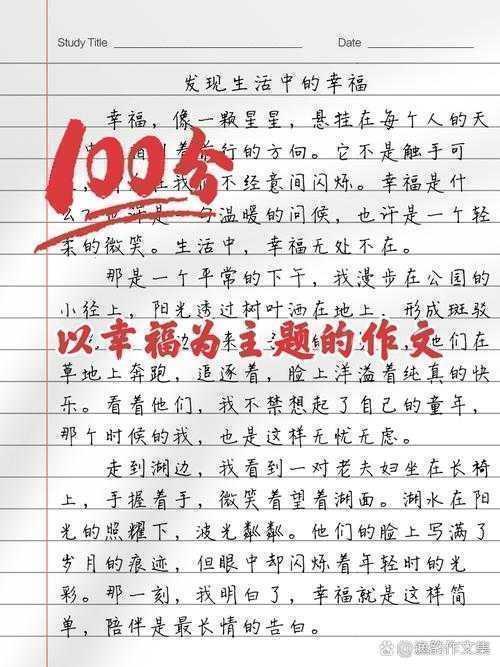 Study Title
Date
发现生活中的幸福
幸福，像一颗星星，悬挂在每个人的天
行的方向。它不是触手可
100分
不经意间闪烁。幸福是什
温暖的问候，也许是一个轻
柔的微笑。生活中，幸福无处不在。
那是一个平常的下午，我漫步在公园的
小径上，阳光透过树叶洒在地上，形成斑驳
以幸福为主题的作文
们在
草地上奔跑，追逐着，脸上洋溢着纯真的快
乐。看着他们，我不禁想起了自己的童年，
那个时候的我，也是这样无忧无虑。
走到湖边，我看到一对老夫妇坐在长椅
上，手握着手，微笑着望着湖面。湖水在阳
光的照耀下，波光粼粼。他们的脸上写满了
岁月的痕迹，但眼中却闪烁着年轻时的光
彩。那一刻，我明白了，幸福就是这样简
单，陪伴是最长情的告白。
作文集